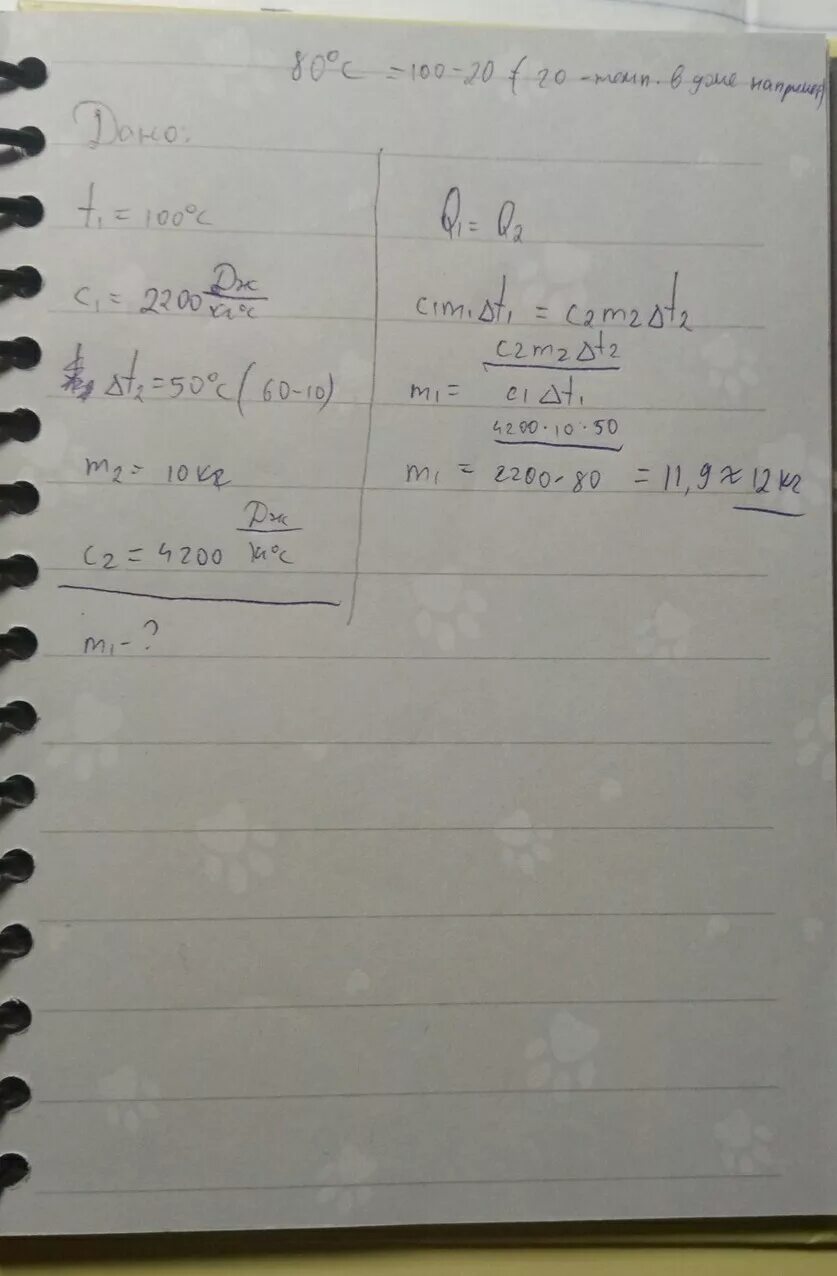 80°C = 100-20 ( 20 -темп. в доме например)
Дано:
t₁ = 100°C
c₁ = 2200 Дж/кг°C
Δt₂ = 50°C ( 60-10)
m₂ = 10кг
c₂ = 4200 Дж/кг°C
m₁ - ?
Q₁ = Q₂
c₁m₁Δt₁ = c₂m₂Δt₂
m₁ = c₂m₂Δt₂/c₁Δt₁
m₁ = 4200·10·50/2200·80 = 11,9 ≈ 12кг